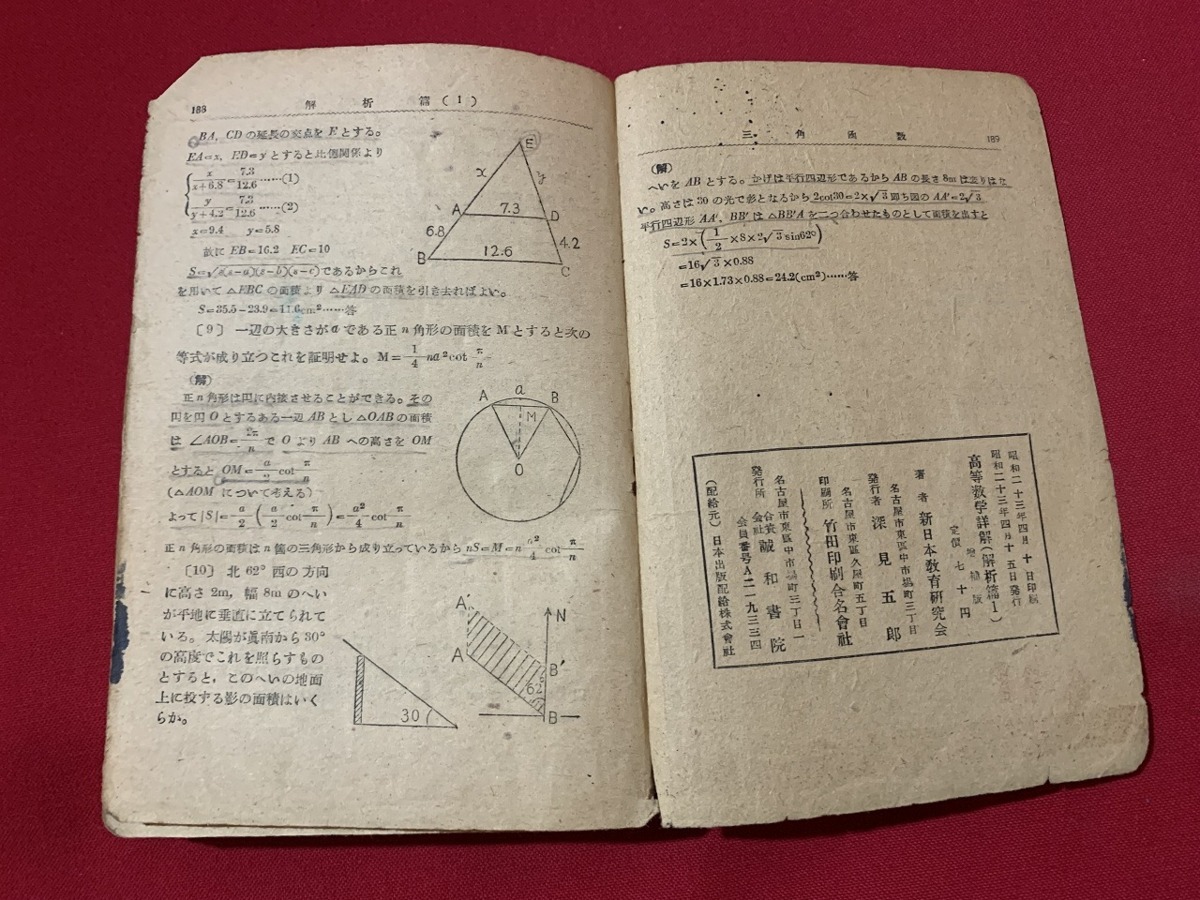 188 解析篇(1)
BA, CD の延長の交点を E とする。
EA=x, ED=y とすると比例関係より
x/(x+6.8)=7.3/12.6……(1)
y/(y+4.2)=7.3/12.6……(2)
x=9.4 y=5.8
故に EB=16.2 EC=10
S=√s(s-a)(s-b)(s-c)であるからこれ
を用いて △EBC の面積より △EAD の面積を引き去ればよい。
S=35.5-23.9=11.6cm²……答
E
x
y
A
7.3
D
6.8
4.2
B
12.6
C
〔9〕 一辺の大きさが a である正 n 角形の面積を M とすると次の
等式が成り立つこれを証明せよ。M=1/4 na²cot π/n
(解)
正 n 角形は円に内接させることができる。その
円を円 O とするある一辺 AB とし △OAB の面積
は ∠AOB=2π/n で O より AB への高さを OM
とすると OM=a/2 cot π/n
(△AOM について考える)
よって |S|=a/2(a/2 cot π/n)=a²/4 cot π/n
正 n 角形の面積は n 箇の三角形から成り立っているから nS=M=n a²/4 cot π/n
a
A
B
M
O
〔10〕 北 62° 西の方向
に高さ 2m, 幅 8m のへい
が平地に垂直に立てられて
いる。太陽が眞南から 30°
の高度でこれを照らすもの
とすると, このへいの地面
上に投ずる影の面積はいく
らか。
30
A′
N
A
B′
62°
B
三角函数 189
(解)
へいを AB とする。かげは平行四辺形であるから AB の長さ 8m は変りはな
い。高さは 30 の光で影となるから 2cot30=2×√3 即ち図の AA′=2√3
平行四辺形 AA′, BB′ は △BB′A を二つ合わせたものとして面積を出すと
S=2×(1/2×8×2√3 sin62°)
=16√3×0.88
=16×1.73×0.88=24.2(cm²)……答
昭和二十三年四月十日印刷
昭和二十三年四月十五日発行
高等数学詳解(解析篇1)
定價七十円
著者 新日本教育研究会
名古屋市東區中市場町三丁目
発行者 深見五郎
名古屋市東區久屋町五丁目
印刷所 竹田印刷合名會社
名古屋市東區中市場町三丁目一
発行所 合資会社 誠和書院
会員番号A二一九三三四
(配給元) 日本出版配給株式會社